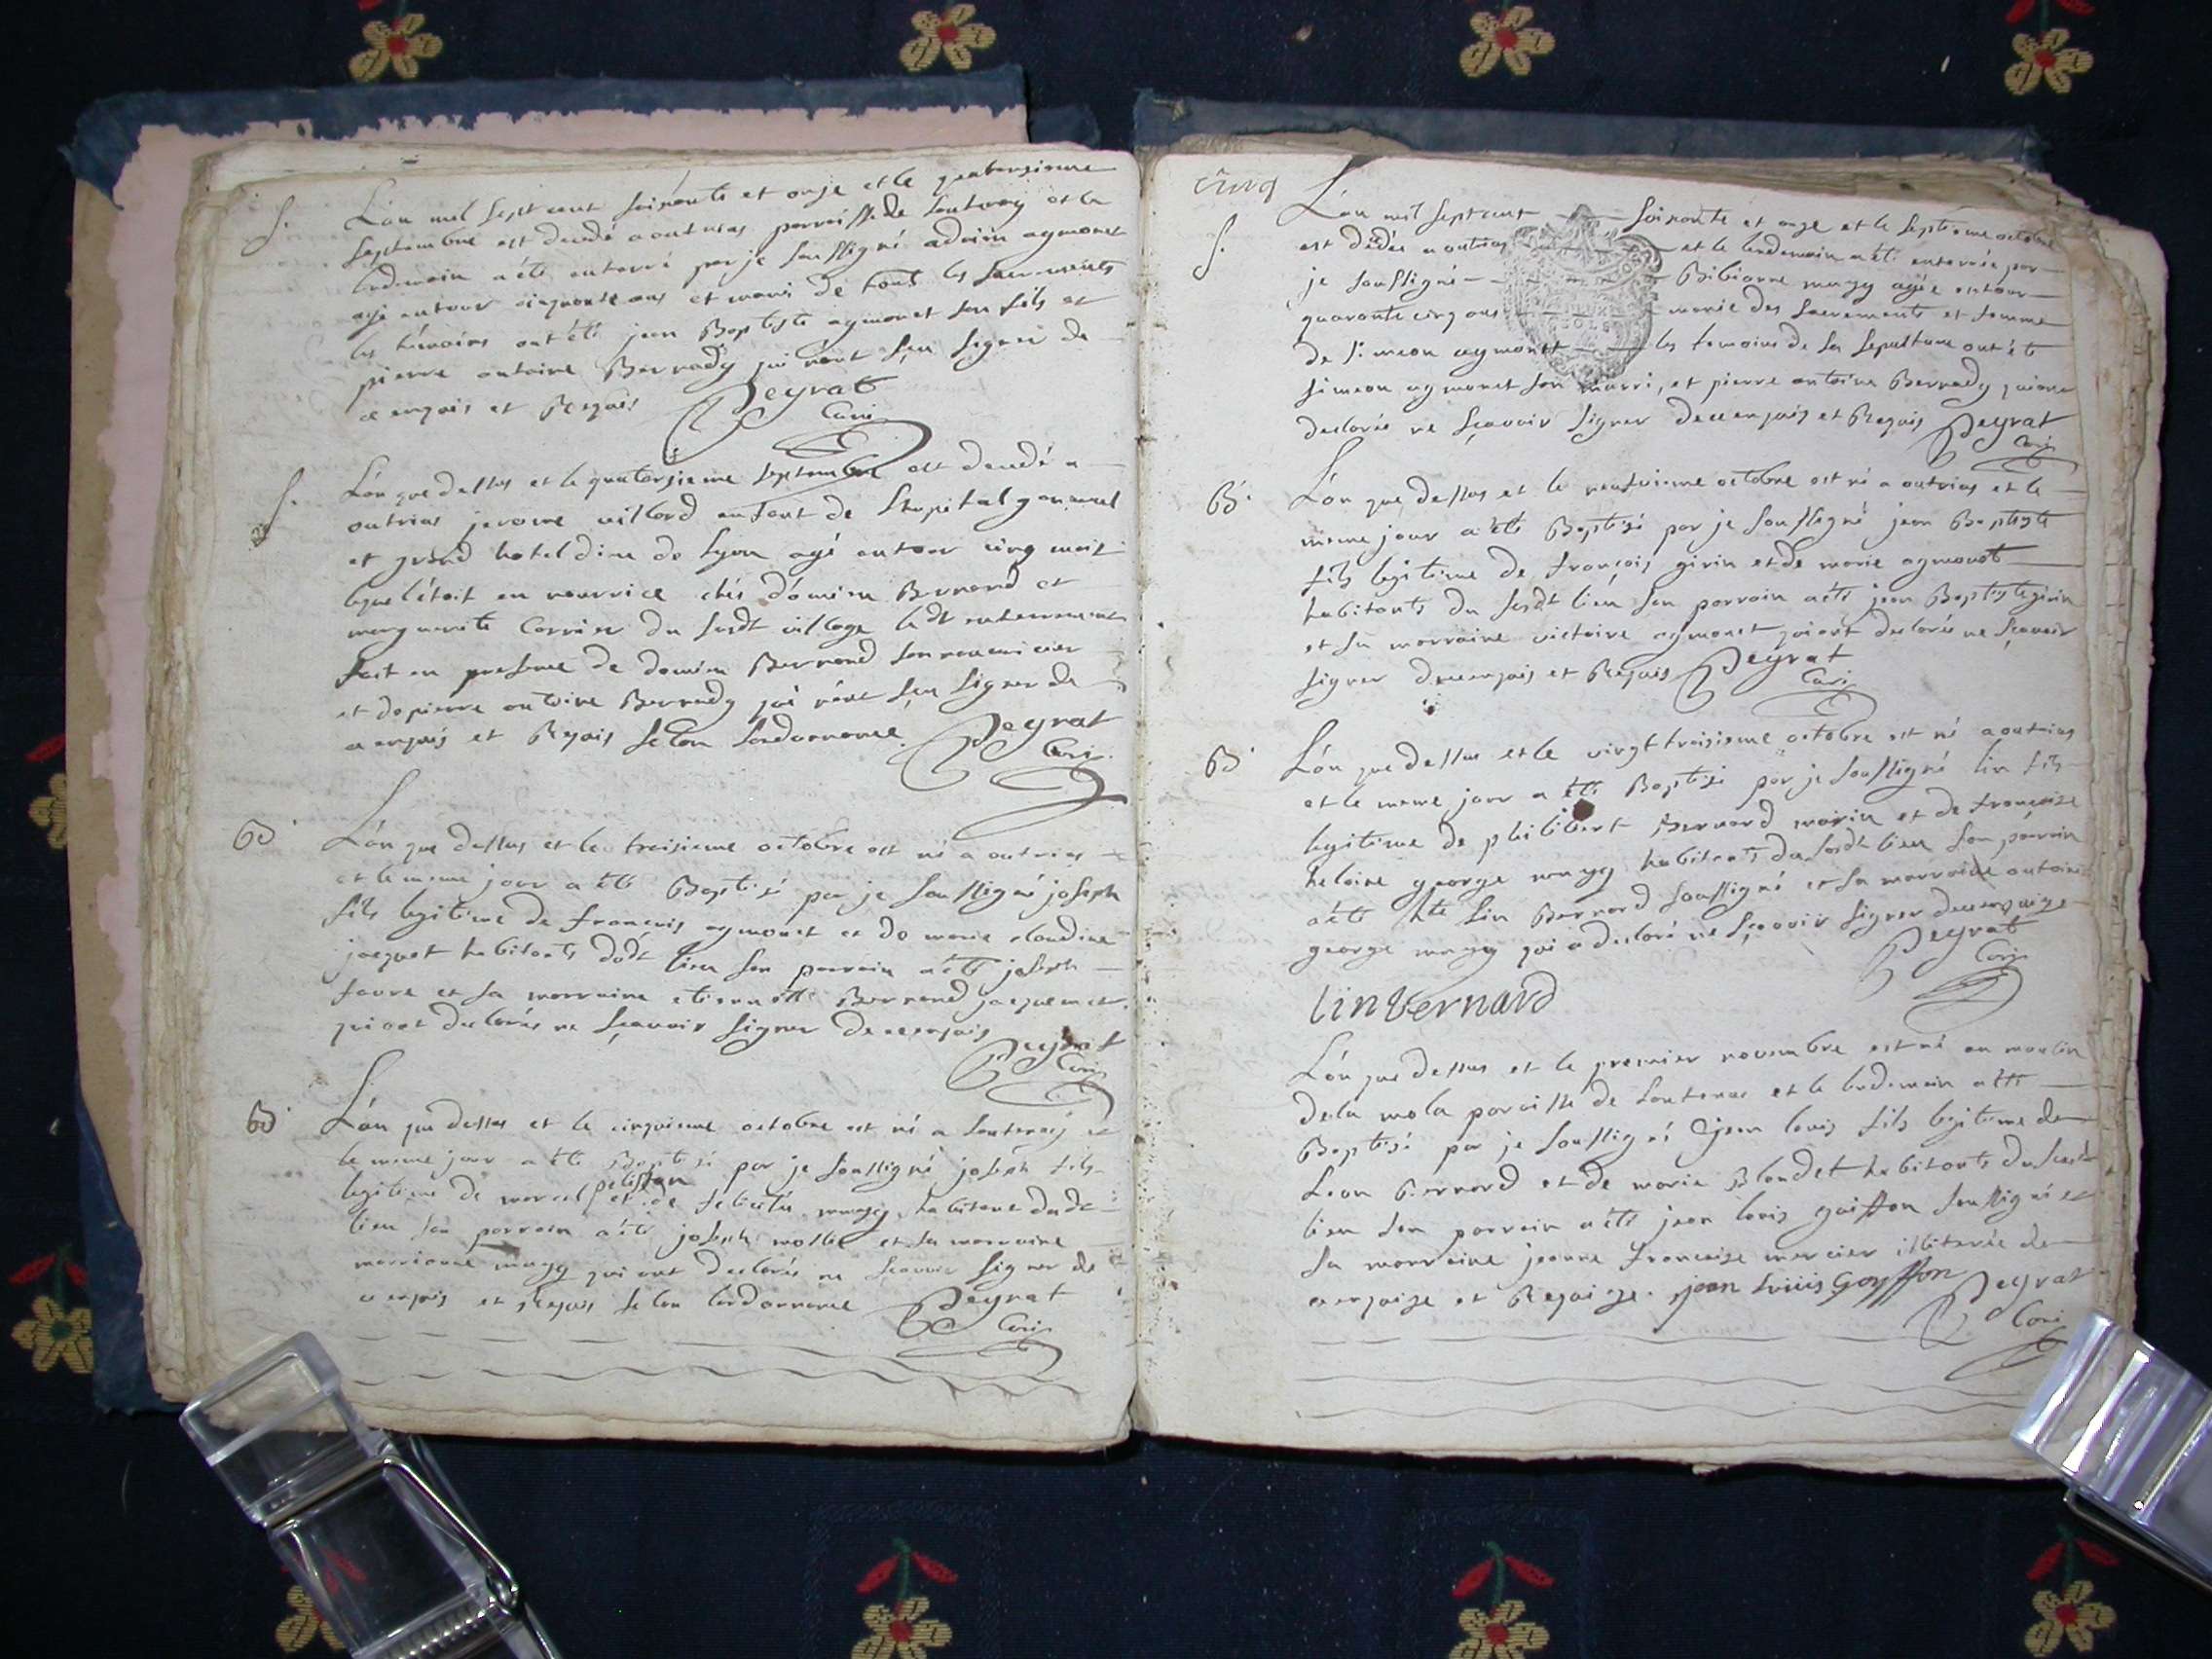 S. L'an mil sept cent soixante et onze et le quatorsieme
septembre est decedé a outrias parroisse de soutenay et le
lendemain a été enterré par je soussigné aymonet
agé autour cinquante ans et muni de tous les sacrements
les témoins ont été jean Baptiste aymonet son fils et
pierre antoine Bernady qui n'ont sçu signer de
ce enquis et Requis Peyrat
Curé
S. L'an que dessus et le quatorsieme septembre est decedé a
outrias jerome villard enfant de L'hopital general
et grand hotel dieu de Lyon agé autour cinq mois
lequel étoit en nourrice chés domin Bernard et
marguerite Cornier du susdt village ledt enterrement
fait en presence de domin Bernard son nourricier
et de pierre antoine Bernady qui n'ont sçu signer de
ce enquis et Requis selon Lordonnance Peyrat
Curé.
B. L'an que dessus et le troisieme octobre est né a outrias
et le meme jour a été Baptisé par je soussigné joseph
fils legitime de francois aymonet et de marie claudine
jacquet habitants dudt lieu son parrain a été joseph
favre et sa marraine etiennette Bernard jacquemet
qui ont declarés ne sçavoir signer de ce enquis
Peyrat
Curé
B. L'an que dessus et le cinquieme octobre est né a soutenay et
le meme jour a été Baptisé par je soussigné joseph fils
pelisson
legitime de marcel et de felicité mugy habitant dudt
lieu son parrain a été joseph et sa marraine
marrianne mugy qui ont declarés ne sçavoir signer de
ce enquis et Requis selon Lordonnance Peyrat
Curé
cinq
S. L'an mil sept cent soixante et onze et le septieme octobre
est dédée a outrias et le lendemain a été enterrée par
je soussigné Bibianne mugy agée entour
quarante cinq ans munie des sacrements et femme
de simeon aymonet les temoins de sa sepulture ont été
simeon aymonet son marri, et pierre antoine Bernady qui ont
declarés ne sçavoir signer de ce enquis et Requis Peyrat
Curé
B. L'an que dessus et le neufvieme octobre est né a outrias et le
meme jour a été Baptisé par je soussigné jean Baptiste
fils legitime de françois girin et de marie aymonet
habitants du susdt lieu son parrain a été jean Baptiste girin
et sa marraine victoire aymonet qui ont declarés ne sçavoir
signer de ce enquis et Requis Peyrat
Curé
B L'an que dessus et le vingt troisieme octobre est né a outrias
et le meme jour a été Baptisé par je soussigné lin fils
legitime de philibert Bernard marin et de françoise
heloine george mugy habitants du susdt lieu son parrain
a été lin Bernard soussigné et sa marraine antoine
george mugy qui a declaré ne sçavoir signer de ce enquise
Peyrat
Curé
lin Bernard
L'an que dessus et le premier novembre est né au moulin
de la mola paroisse de soutenai et le lendemain a été
Baptisé par je soussigné jean louis fils legitime de
Leon Bernard et de marie Blondet habitants du susdt
lieu son parrain a été jean louis goiffon soussigné et
sa marraine jeanne françoise mercier illiterée de
ce enquise et Requise. jean Louis Goyffon Peyrat
Curé